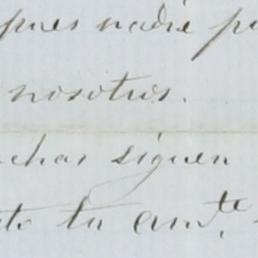 pues nadie pu
nosotros.
chas siguen
to tu am.te